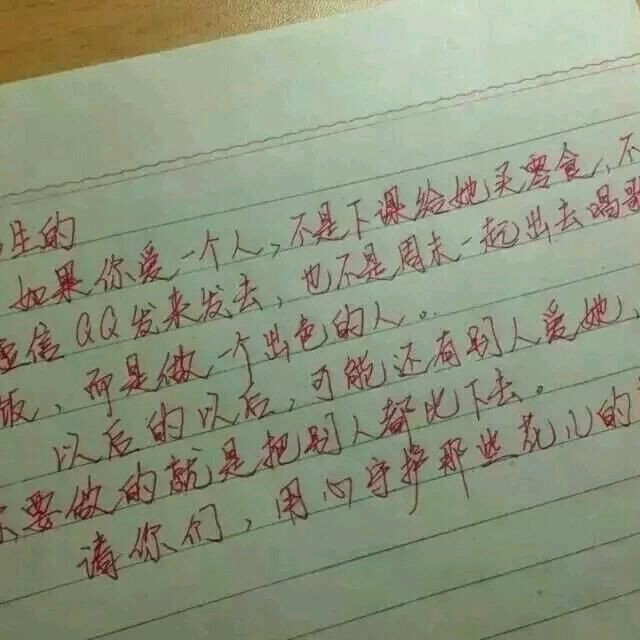 生的
如果你爱一个人,不是下课给她买零食,不
信QQ发来发去,也不是周末一起出去唱歌
饭,而是做一个出色的人。
以后的以后,可能还有别人爱她,
要做的就是把别人都比下去。
请你们,用心守护那些花儿的